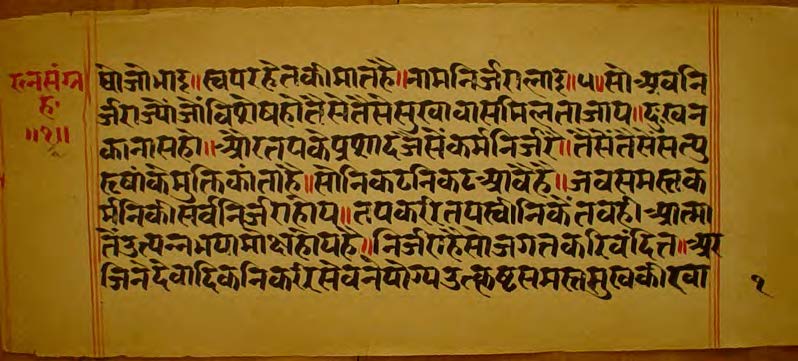 रत्नसंग्र
ह
॥१॥
षो जो भाइ॥ स्वपरहेतकी मात है॥ नाम निर्जरा लाइ॥५॥ सो अब नि
र्जरा ज्यों ज्यों विशेष होतै सेतैसे सुखावास मिलता जाय॥ दुखन
का नास हो॥ और तपके प्रशाद जैसें कर्म निर्जरै॥ तैसें तैसे सत्पु
रुषांके मुक्तिकांता है॥ सो निकट निकट आवै है॥ जब समस्त क
र्मनिकी सर्व निर्जरा होय॥ तप करि तपस्वीनिकें तबही आत्मा
तें उत्पन्न भया मोक्ष होय है॥ निर्जरा है सो जगत करि वंदित॥ अर
जिनदेवादिकनि करि सेवने योग्य उत्कृष्ट समस्त सुखकी खा
१